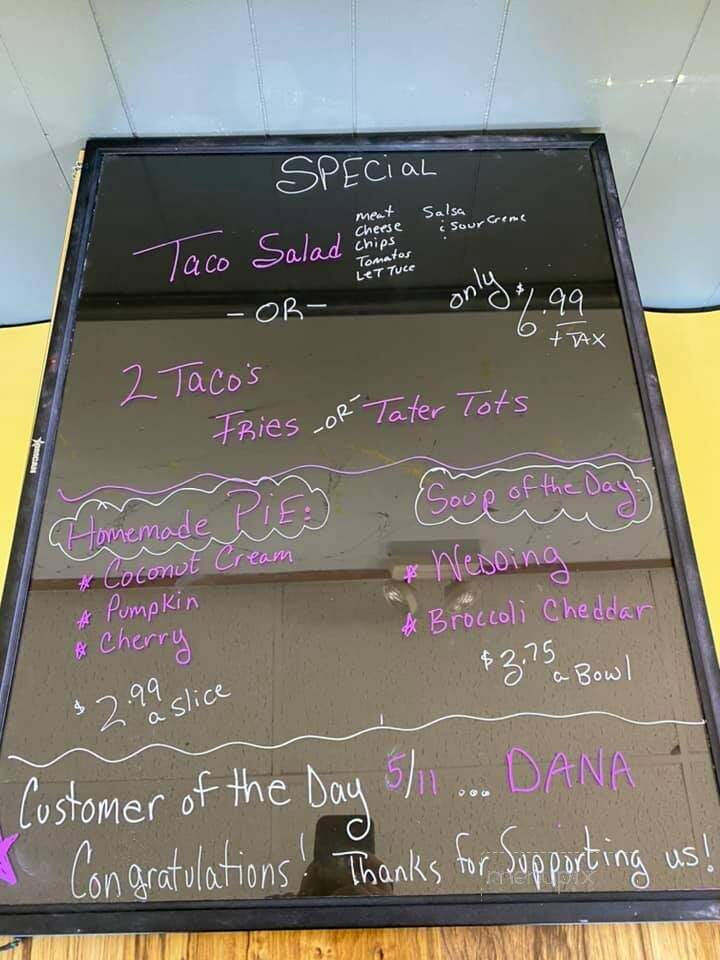 SPECiaL
Taco Salad
meat
Cheese
Chips
Tomatos
LeTTuce
Salsa
& Sour Creme
- OR -
only $6.99
+ TAX
2 Taco's
FRies -OR- Tater Tots
Homemade PiE:
* Coconut Cream
* Pumpkin
* Cherry
$2.99
a slice
Soup of the Day:
* Wedding
* Broccoli Cheddar
$3.75
a Bowl
Customer of the Day 5/11 ... DANA
Congratulations! Thanks for Supporting us!
menupix